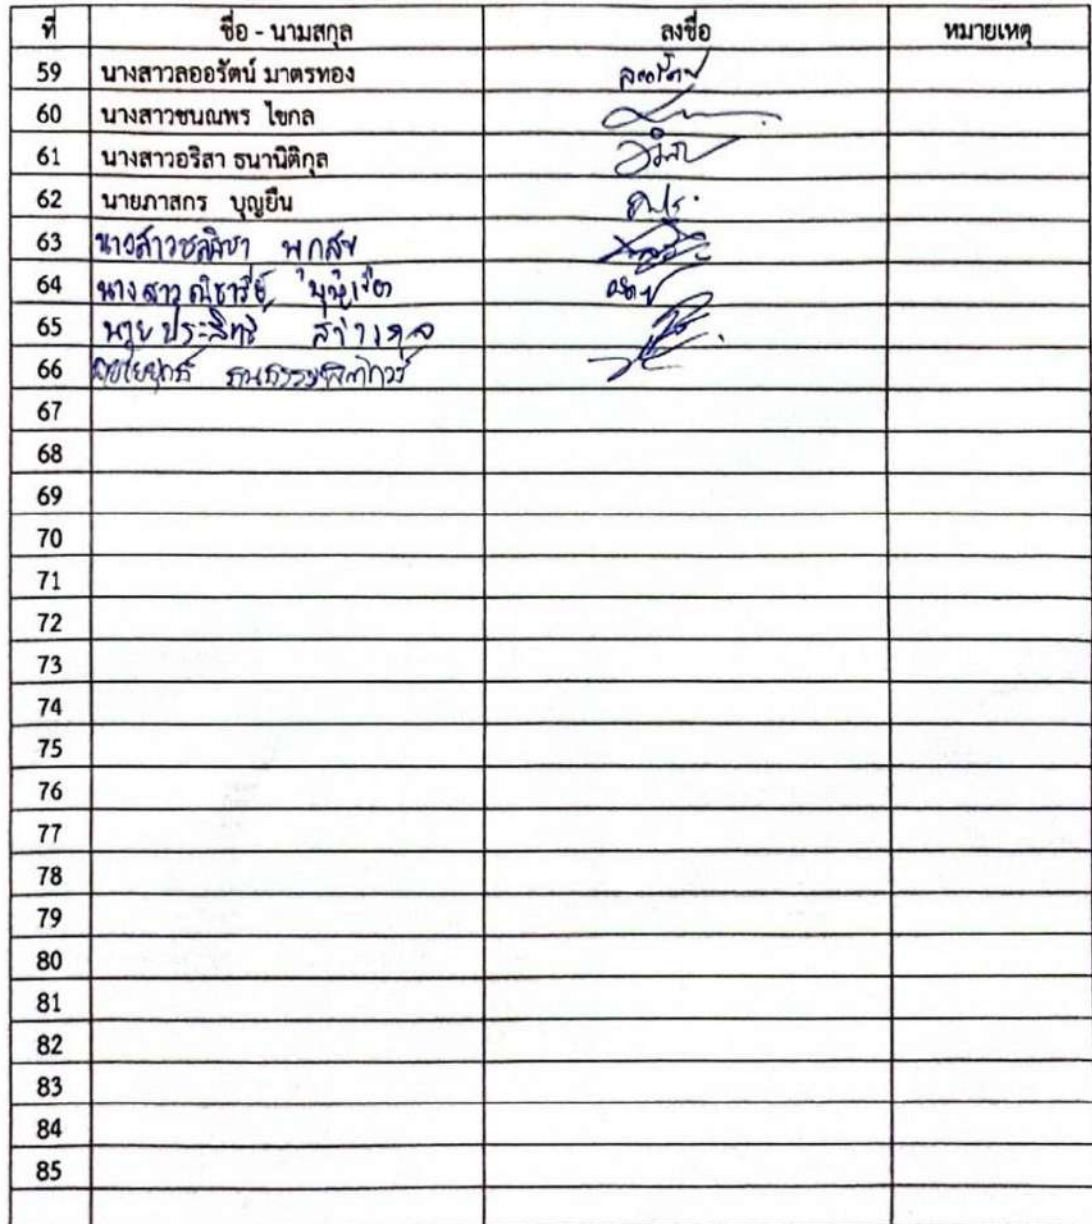 ที่ ชื่อ - นามสกุล ลงชื่อ หมายเหตุ
59 นางสาวลออรัตน์ มาตรทอง ลออรัตน์
60 นางสาวชนณพร ไขกล
61 นางสาวอริสา ธนานิติกุล อริสา
62 นายภาสกร บุญยืน
63 นางสาวชลิชา
64 นางสาว ณิชารีย์
65 นาย ประสิทธิ์
66
67
68
69
70
71
72
73
74
75
76
77
78
79
80
81
82
83
84
85